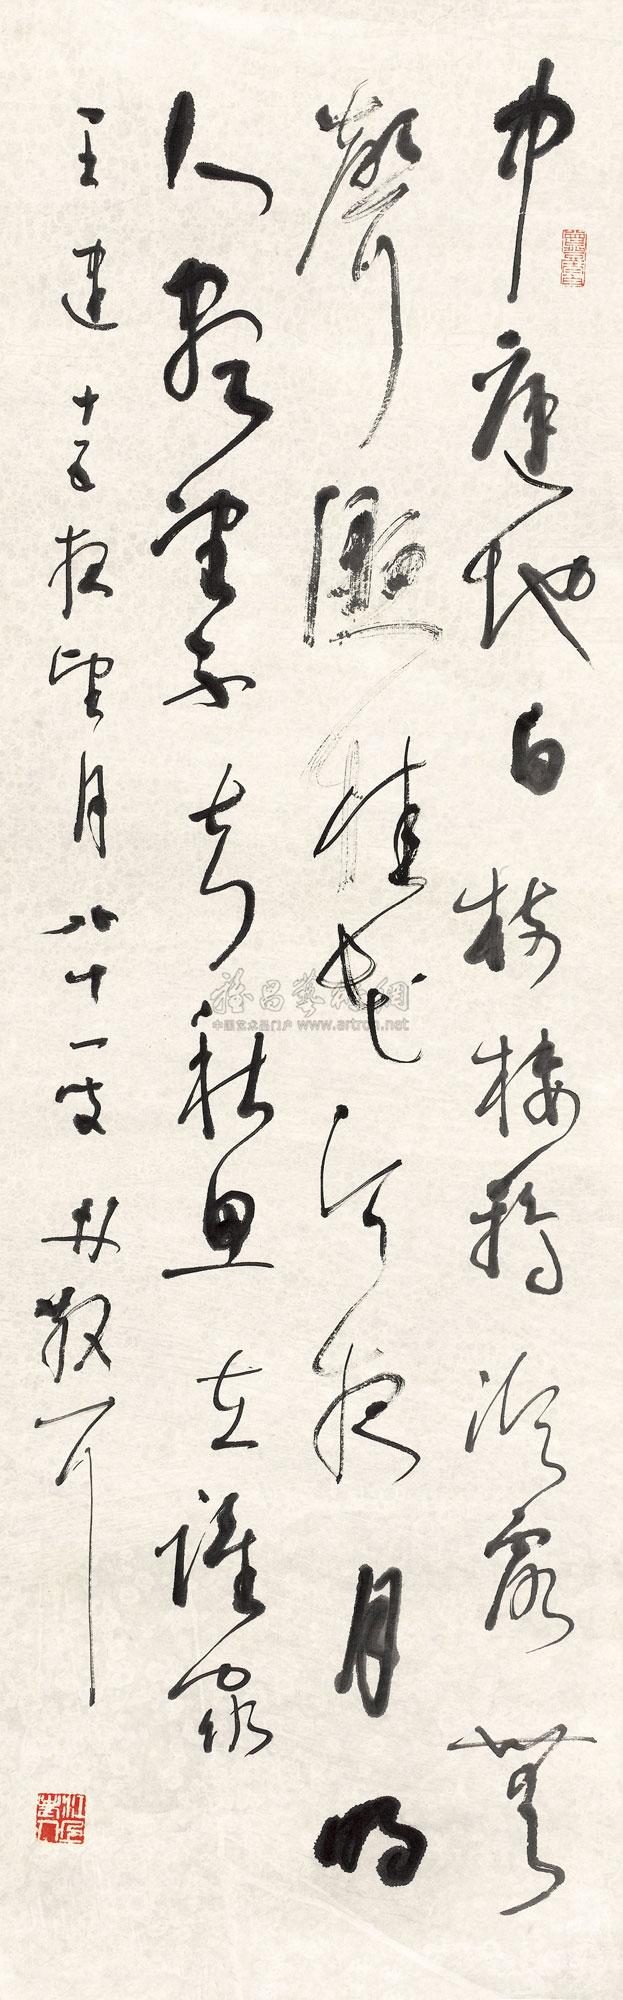 中庭地白樹棲鴉冷露無
聲溼桂花今夜月明
人盡望不知秋思在誰家
王建十五夜望月八十一叟林散耳
雅昌藝術網
中国艺术品门户 www.artron.net